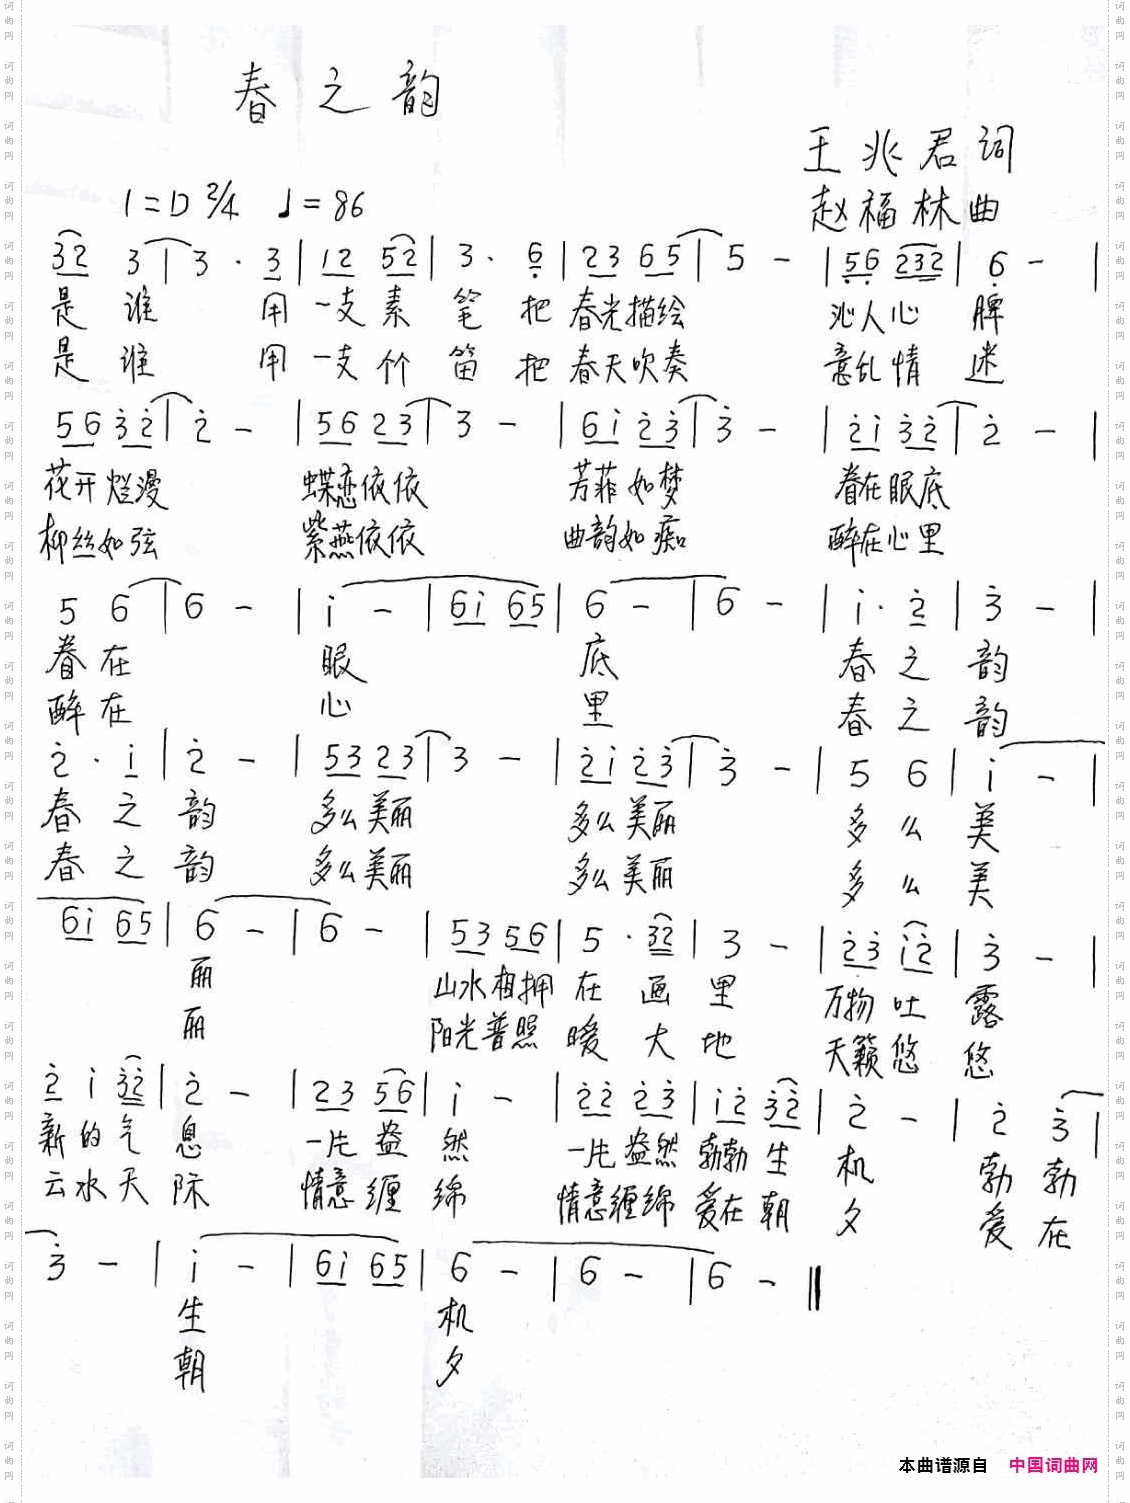 春之韵
王兆君词
1=D 2/4 ♩=86
赵福林曲
32 3 | 3 · 3 | 12 52 | 3 · 6 | 23 65 | 5 - | 56 232 | 6 - |
是 谁 用 一支 素 笔 把 春光描绘 沁人心 脾
是 谁 用 一支 竹 笛 把 春天吹奏 意乱情 迷
56 32 | 2 - | 56 23 | 3 - | 61 23 | 3 - | 21 32 | 2 - |
花开烂漫 蝶恋依依 芳菲如梦 眷在眼底
柳丝如弦 紫燕依依 曲韵如痴 醉在心里
5 6 | 6 - | i - | 6i 65 | 6 - | 6 - | i · 2 | 3 - |
眷在 眼 底 春之 韵
醉在 心 里 春之 韵
2 · i | 2 - | 53 23 | 3 - | 2i 23 | 3 - | 5 6 | i - |
春之 韵 多么美丽 多么美丽 多么 美
春之 韵 多么美丽 多么美丽 多么 美
6i 65 | 6 - | 6 - | 53 56 | 5 · 32 | 3 - | 23 i2 | 3 - |
丽 山水相拥 在 画 里 万物吐 露
丽 阳光普照 暖 大 地 天籁悠 悠
2 i 32 | 2 - | 23 56 | i - | 22 23 | i2 32 | 2 - | 2 3 |
新的气 息 一片 盎 然 一片盎然 勃勃生 机 勃勃
云水天 际 情意缠 绵 情意缠绵 爱在朝 夕 爱在
3 - | i - | 6i 65 | 6 - | 6 - | 6 - ‖
生 机
朝 夕
本曲谱源自 中国词曲网